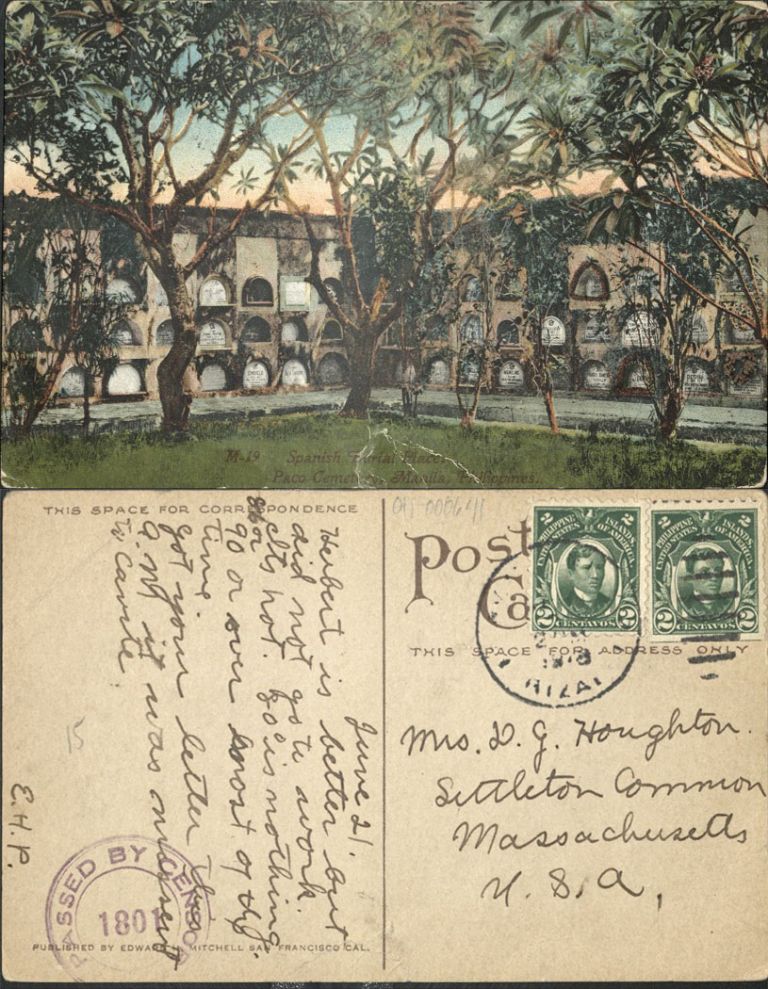 M-19 Spanish Burial Place,
Paco Cemetery, Manila, Philippines.
THIS SPACE FOR CORRESPONDENCE
June 21.
Herbert is better but
did not go to work.
its hot. 80° is nothing
86 or
90 or over most of the
time.
Got your letter this
a.m. it was missent
to Cavite
E.H.P.
15
PASSED BY CENSOR
1801
PUBLISHED BY EDWARD H. MITCHELL SAN FRANCISCO CAL.
Post
Ca
THIS SPACE FOR ADDRESS ONLY
PHILIPPINE ISLANDS
UNITED STATES OF AMERICA
2 CENTAVOS 2
PHILIPPINE ISLANDS
UNITED STATES OF AMERICA
2 CENTAVOS 2
RIZAL
Mrs. D. G. Houghton.
Littleton Common
Massachusetts
U. S. A,